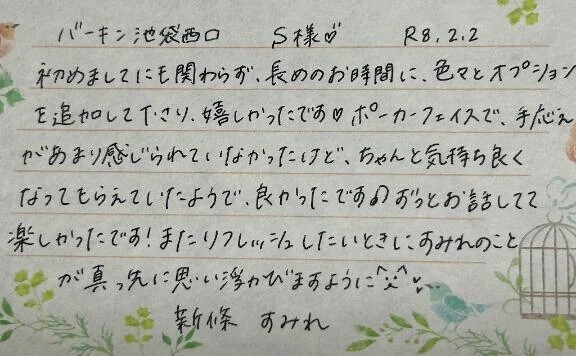 バーキン池袋西口 S様♡ R8.2.2
初めましてにも関わらず、長めのお時間に、色々とオプション
を追加して下さり、嬉しかったです♡ポーカーフェイスで、手応え
があまり感じられていなかったけど、ちゃんと気持ち良く
なってもらえていたようで、良かったです♪ずっとお話してて
楽しかったです!またリフレッシュしたいときに、すみれのこと
が真っ先に思い浮かびますように^^♡
新條 すみれ